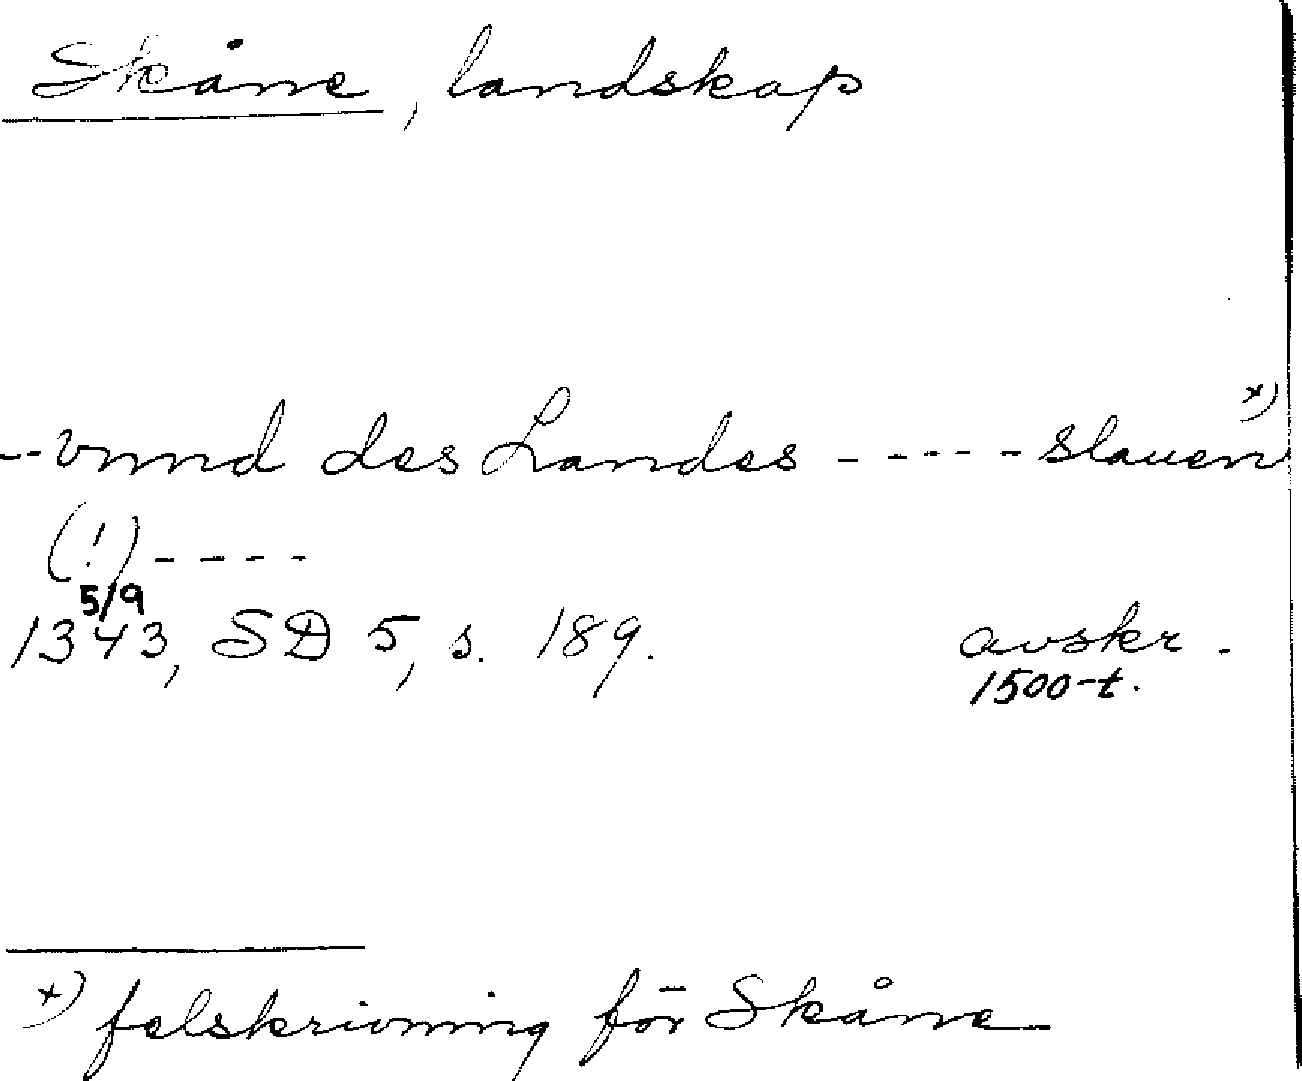 Skåne, landskap
--vnnd des Landes - - - - - slauen x)
(!) - - - -
5/9
1343, SD 5, s. 189. avskr.
1500-t.
x) felskrivning för Skåne